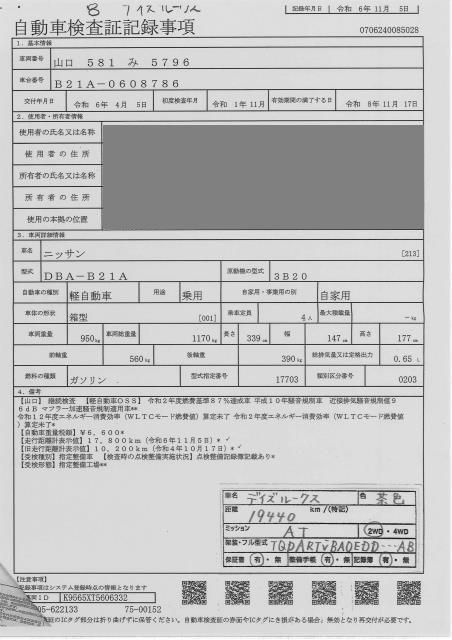 8 デイズルークス
記録年月日 令和 6年11月 5日
自動車検査証記録事項
0706240085028
1．基本情報
車両番号 山口 581 み 5796
車台番号 B21A-0608786
交付年月日 令和 6年 4月 5日 初度検査年月 令和 1年11月 有効期間の満了する日 令和 8年11月 17日
2．使用者・所有者情報
使用者の氏名又は名称
使用者の住所
所有者の氏名又は名称
所有者の住所
使用の本拠の位置
3．車両詳細情報
車名 ニッサン [213]
型式 DBA-B21A 原動機の型式 3B20
自動車の種別 軽自動車 用途 乗用 自家用・事業用の別 自家用
車体の形状 箱型 [001] 乗車定員 4人 最大積載量 -kg
車両重量 950kg 車両総重量 1170kg 長さ 339cm 幅 147cm 高さ 177cm
前軸重 560kg 後軸重 390kg 総排気量又は定格出力 0.65L
燃料の種類 ガソリン 型式指定番号 17703 類別区分番号 0203
4．備考
【山口】 継続検査 【軽自動車OSS】 令和2年度燃費基準87%達成車 平成10年騒音規制車 近接排気騒音規制値9
6dB マフラー加速騒音規制適用車**
令和12年度エネルギー消費効率（WLTCモード燃費値）算定未了 令和2年度エネルギー消費効率（WLTCモード燃費値
）算定未了*
【自動車重量税額】¥6,600*
【走行距離計表示値】17,800km（令和6年11月5日）*
【旧走行距離計表示値】10,200km（令和4年10月17日）*
【受検種別】指定整備車 【検査時の点検整備実施状況】点検整備記録簿記載あり*
【受検形態】指定整備工場**
車名 デイズルークス 色 茶色
距離 19440 km／(特記)
ミッション AT 2WD・4WD
架装・フル型式
保証書 有・無 整備手帳 有・無 記録簿 有・無
【注意事項】
記録事項はシステム登録時点の情報となります
車両ID K9565XT5606332
05-622133 75-00152